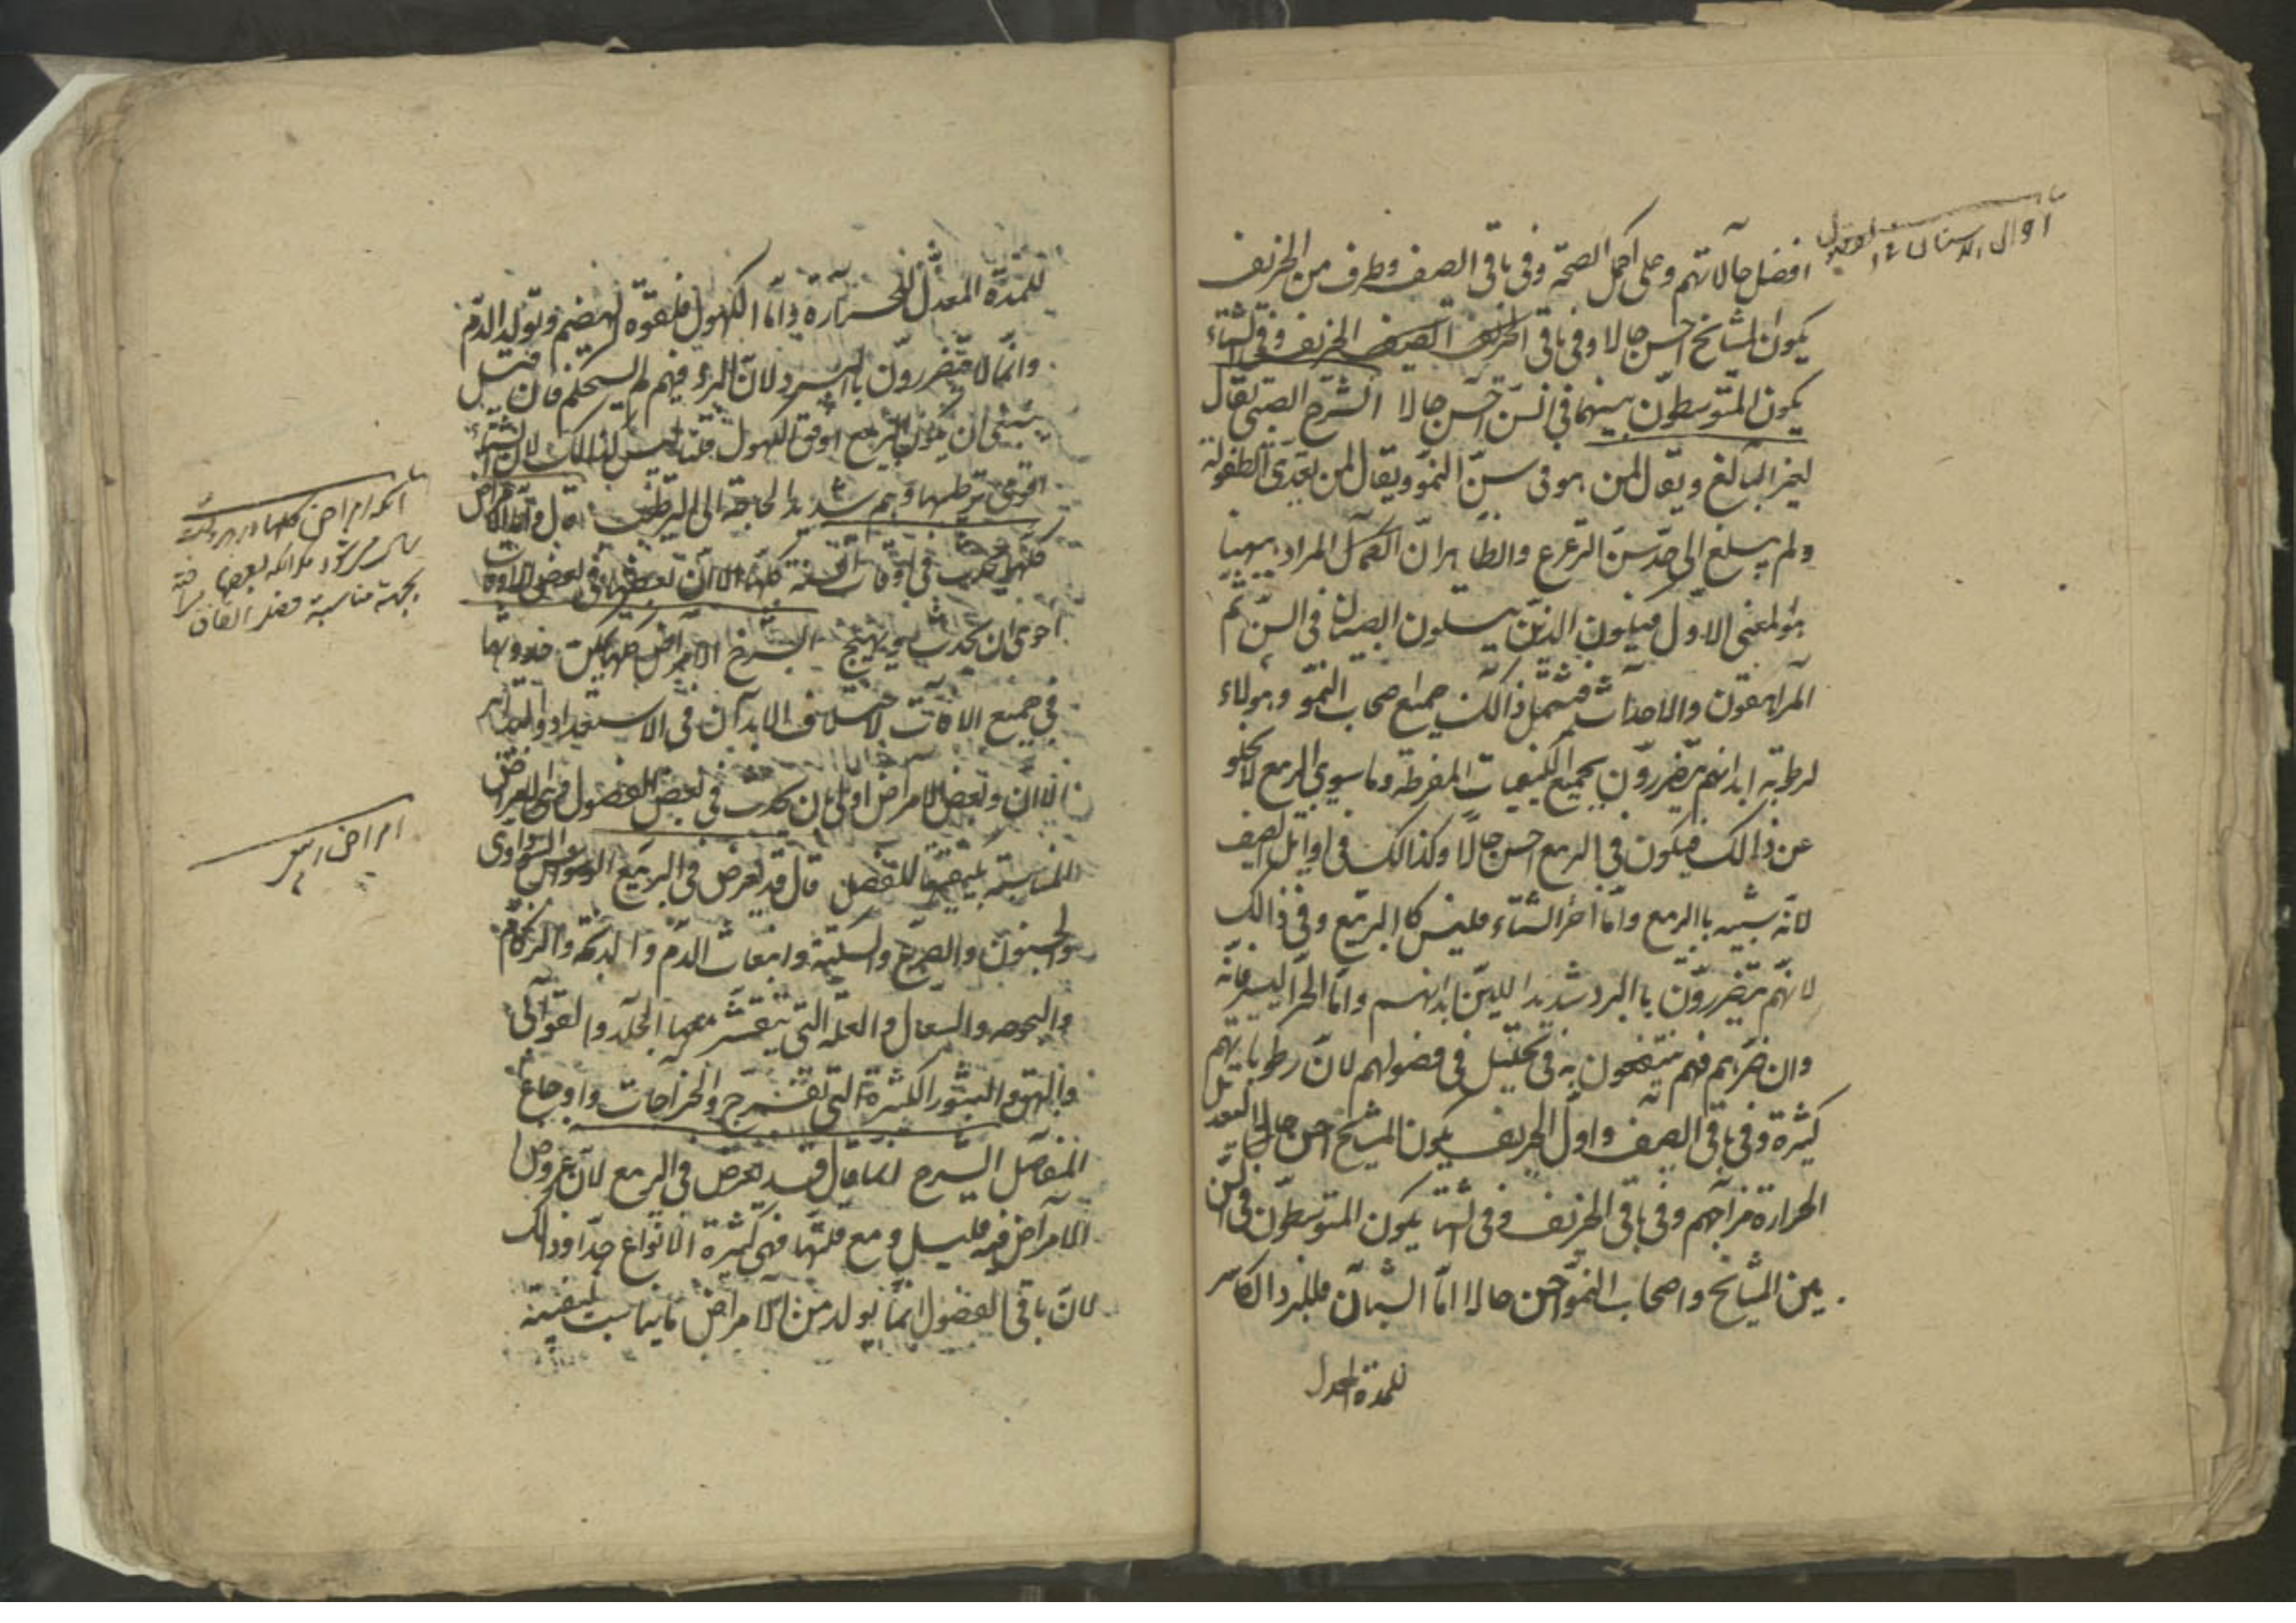 افضل حالاتهم وعلى اكمل الصحة وفى باقى الصيف وطرف من الخريف
يكون المشايخ احسن حالا وفى باقى الخريف الصيف الخريف وفى الشتاء
يكون المتوسطون بينهما فى السن احسن حالا الشرح الصبى يقال
لغير البالغ ويقال لمن هو فى سن النمو ويقال لمن تعدى الطفولة
ولم يبلغ الى حد سن الترعرع والظاهر ان المراد ههنا
هو المعنى الاول فيكون الذين يتلون الصبيان فى السن ثم
المراهقون والاحداث فتشمل ذالك جميع اصحاب النمو وهولاء
لرطوبة ابدانهم يتضررون بجميع الكيفيات المفرطة وما سوى الربيع لا يخلو
عن ذالك فيكون فى الربيع احسن حالا وكذالك فى اوائل الصيف
لانه شبيه باالربيع واما اخر الشتاء فليس كا الربيع وفى ذالك
لانهم يتضررون باالبرد شديدا للين ابدانهم واما الحر اليسير فانه
وان ضرهم فهم ينتفعون به فى تحليل فضولهم لان رطوباتهم
كثيرة وفى باقى الصيف واول الخريف يكون المشايخ احسن حالا لتعديل
الحرارة مزاجهم وفى باقى الخريف وفى الشتا يكون المتوسطون فى السن
بين المشايخ واصحاب النمو احسن حالا اما الشبان فللبرد الكاسر
للمدة المعدل
للمدة المعدل للحرارة واما الكهول فلقوة الهضم وتولد الدم
وانما لا يتضررون باالبرد لان البرد فيهم لم يستحكم فان قيل
ينبغى ان يكون الربيع اوفق للكهول قلنا ليس كذالك لان الشتاء
اقوى ترطيبا وهم شديد الحاجة الى الترطيب قال والامراض
كلها تحدث فى اوقات السنة كلها الا ان بعضها فى بعض الاوقات
احرى ان يحدث ويهيج الشرح الامراض كلها يمكن حدوثها
فى جميع الاوقات لاختلاف الابدان فى الاستعداد والتدابير
الا ان بعض الامراض اولى بان يحدث فى بعض الفصول فهى الامراض
المناسبة بكيفيتها للفصل قال قد يعرض فى الربيع الوسواس السوداوى
والجنون والصرع والسكتة وانبعاث الدم والذبحة والزكام
والبحوحة والسعال والعلة التى يتقشر معها الجلد والقوابى
والبهق والبثور الكثيرة التى تتقرح والخراجات واوجاع
المفاصل الشرح انما قال قد يعرض فى الربيع لان عروض
الامراض فيه قليل ومع قلتها فهى كثيرة الانواع جدا وذالك
لان باقى الفصول انما يولد من الامراض ما يناسب كيفيته
بجهة مناسبة فصل
امراض ربيع